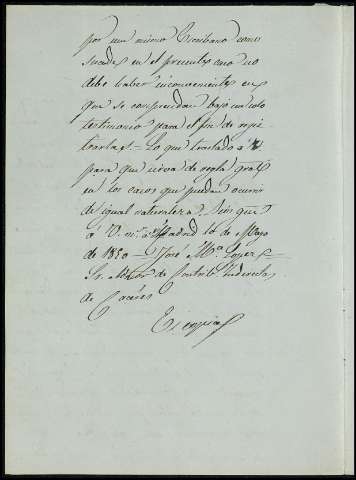 por un mismo Escribano como
sucede en el presente caso no
debe haber inconveniente en
que se comprendan bajo un solo
testimonio para el fin de regis
trarlas = Lo que traslado á V
para que sirva de regla gral
en los casos que puedan ocurrir
de igual naturaleza. Dios gue
á V. m.s a.s Madrid 10 de Mayo
de 1850 = José M.a Lopez =
Sr. Admor de Contrib.s Indirectas
de Caceres
Es copia